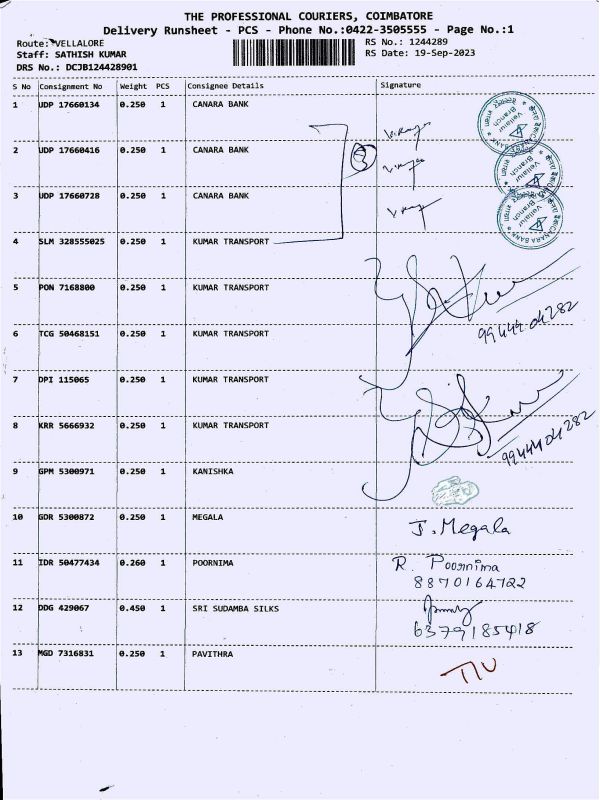 THE PROFESSIONAL COURIERS, COIMBATORE
Delivery Runsheet - PCS - Phone No.:0422-3505555 - Page No.:1
Route: VELLALORE
RS No.: 1244289
Staff: SATHISH KUMAR
RS Date: 19-Sep-2023
DRS No.: DCJB124428901
S No Consignment No Weight PCS Consignee Details Signature
1 UDP 17660134 0.250 1 CANARA BANK
2 UDP 17660416 0.250 1 CANARA BANK
3 UDP 17660728 0.250 1 CANARA BANK
4 SLM 328555025 0.250 1 KUMAR TRANSPORT
5 PON 7168800 0.250 1 KUMAR TRANSPORT
99444 04282
6 TCG 50468151 0.250 1 KUMAR TRANSPORT
7 DPI 115065 0.250 1 KUMAR TRANSPORT
8 KRR 5666932 0.250 1 KUMAR TRANSPORT
99444 04282
9 GPM 5300971 0.250 1 KANISHKA
10 GDR 5300872 0.250 1 MEGALA J. Megala
11 IDR 50477434 0.260 1 POORNIMA R. Poornima
8870164722
12 DDG 429067 0.450 1 SRI SUDAMBA SILKS
6379185418
13 MGD 7316831 0.250 1 PAVITHRA